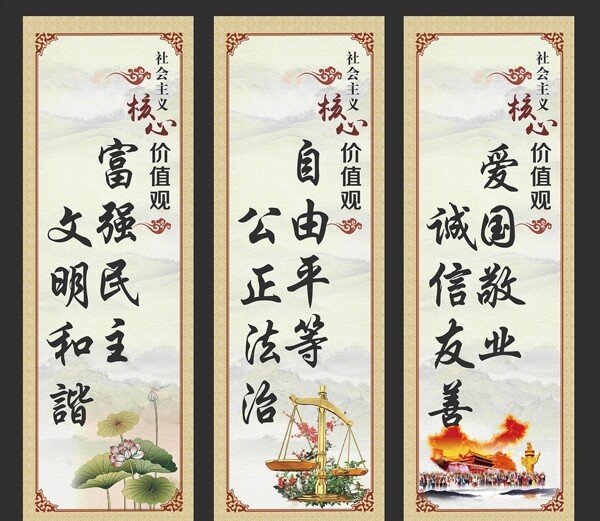 社会主义
核心
价值观
富强民主
文明和諧
社会主义
核心
价值观
自由平等
公正法治
社会主义
核心
价值观
爱国敬业
诚信友善